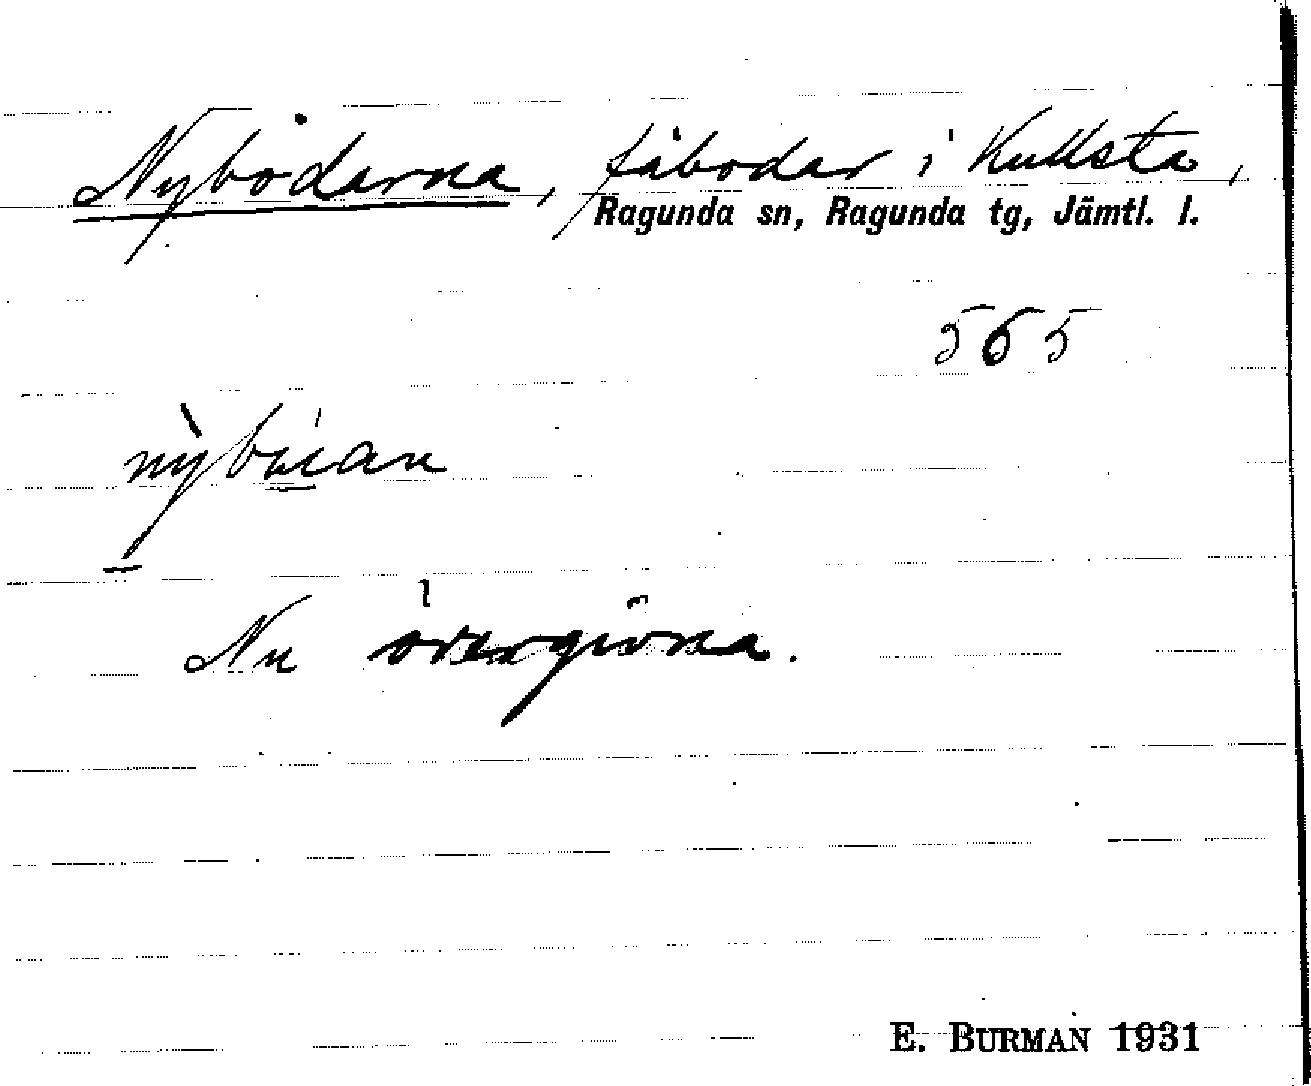 Nybodarna, fäbodar i Kullsta,
Ragunda sn, Ragunda tg, Jämtl. l.
565
Nu övergivna.
E. BURMAN 1931